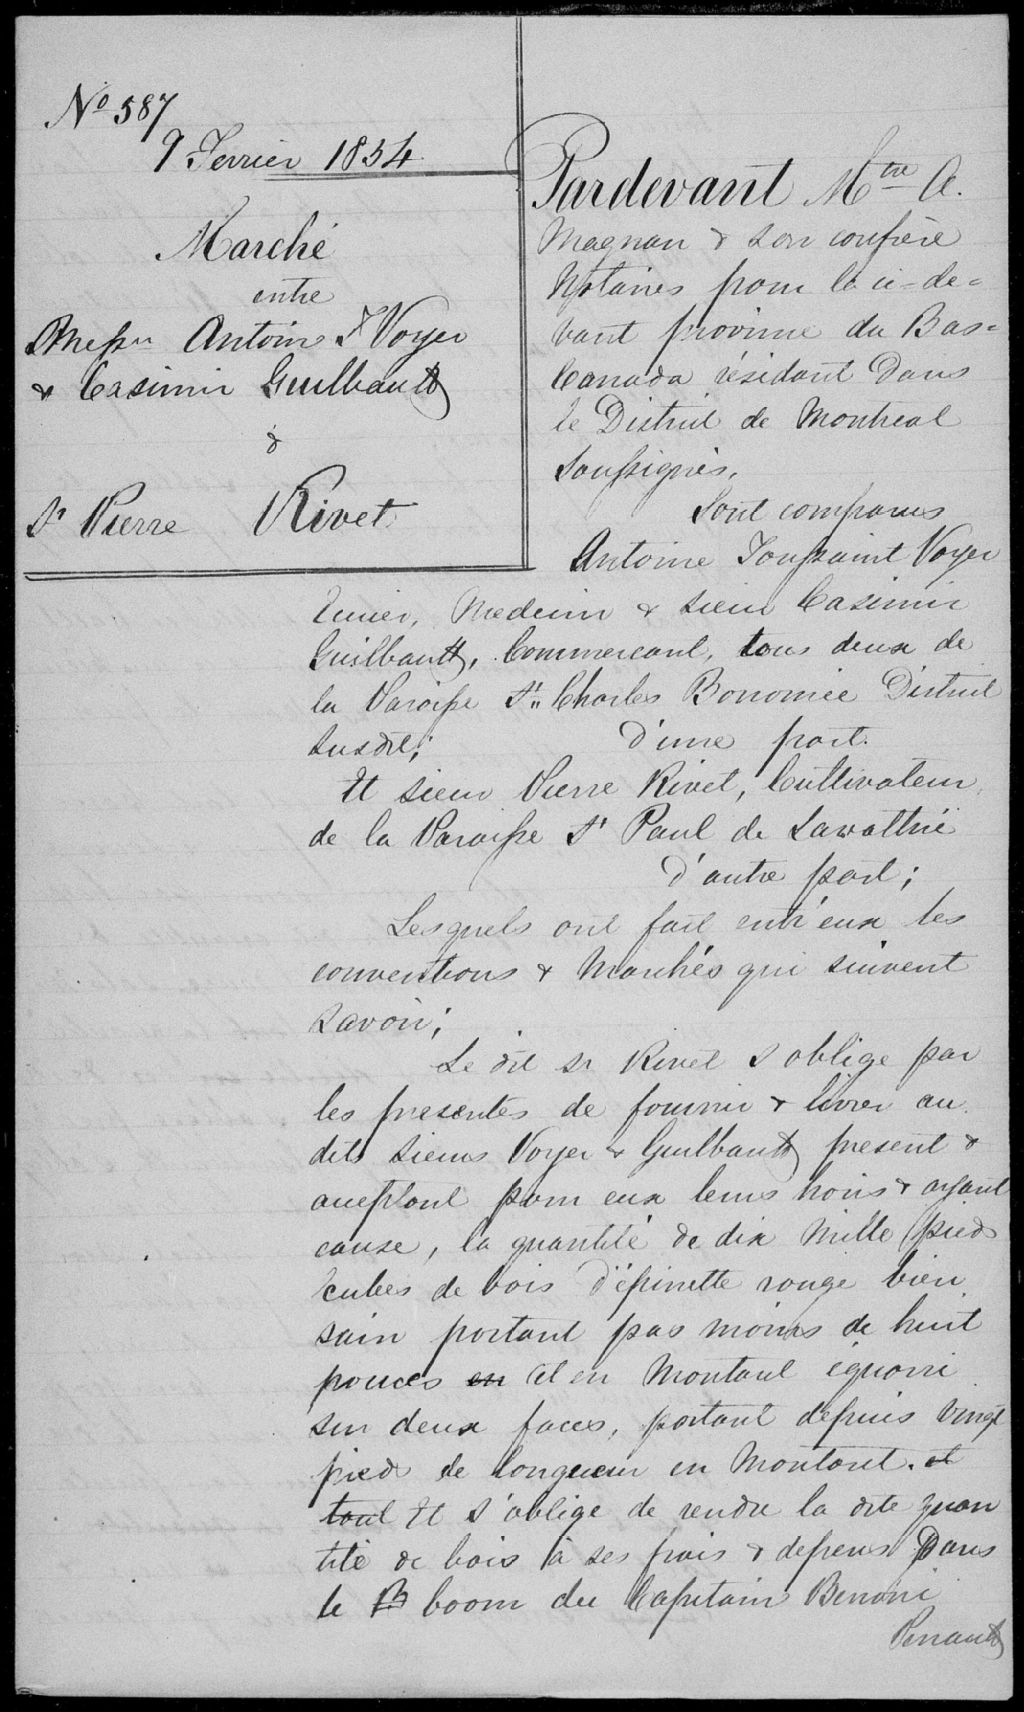 No 587
9 Fevrier 1854
Marché
entre
Messrs Antoine T Voyer
& Casimir Guilbault
&
Sr Pierre Rivet
Pardevant Mtre A.
Magnan & son confrère
Notaires pour la ci-de=
vant province du Bas=
Canada résidant dans
le District de Montreal
Soussignés,
Sont comparus
Antoine Toussaint Voyer
Ecuier, Medecin & sieur Casimir
Guilbault, Commercant, tous deux de
la Paroisse St Charles Boromée District
susdit; d'une part.
Et sieur Pierre Rivet, Cultivateur
de la Paroisse St Paul de Lavaltrie
d'autre part;
Lesquels ont fait entr'eux les
conventions & Marchés qui suivent
savoir;
Le dit sr Rivet s'oblige par
les presentes de fournir & livrer au
dits sieurs Voyer & Guilbault present &
acceptant pour eux leurs hoirs & ayant
cause, la quantité de dix mille pieds
cubes de bois d'épinette rouge bien
sain portant pas moins de huit
pouces en et en Montant équarri
sur deux faces, portant depuis vingt
pieds de longueur en Montant. et
tout Et s'oblige de rendre la dite quan
tité de bois à ses frais & depens Dans
le B boom du Capitain Benoni
Penault